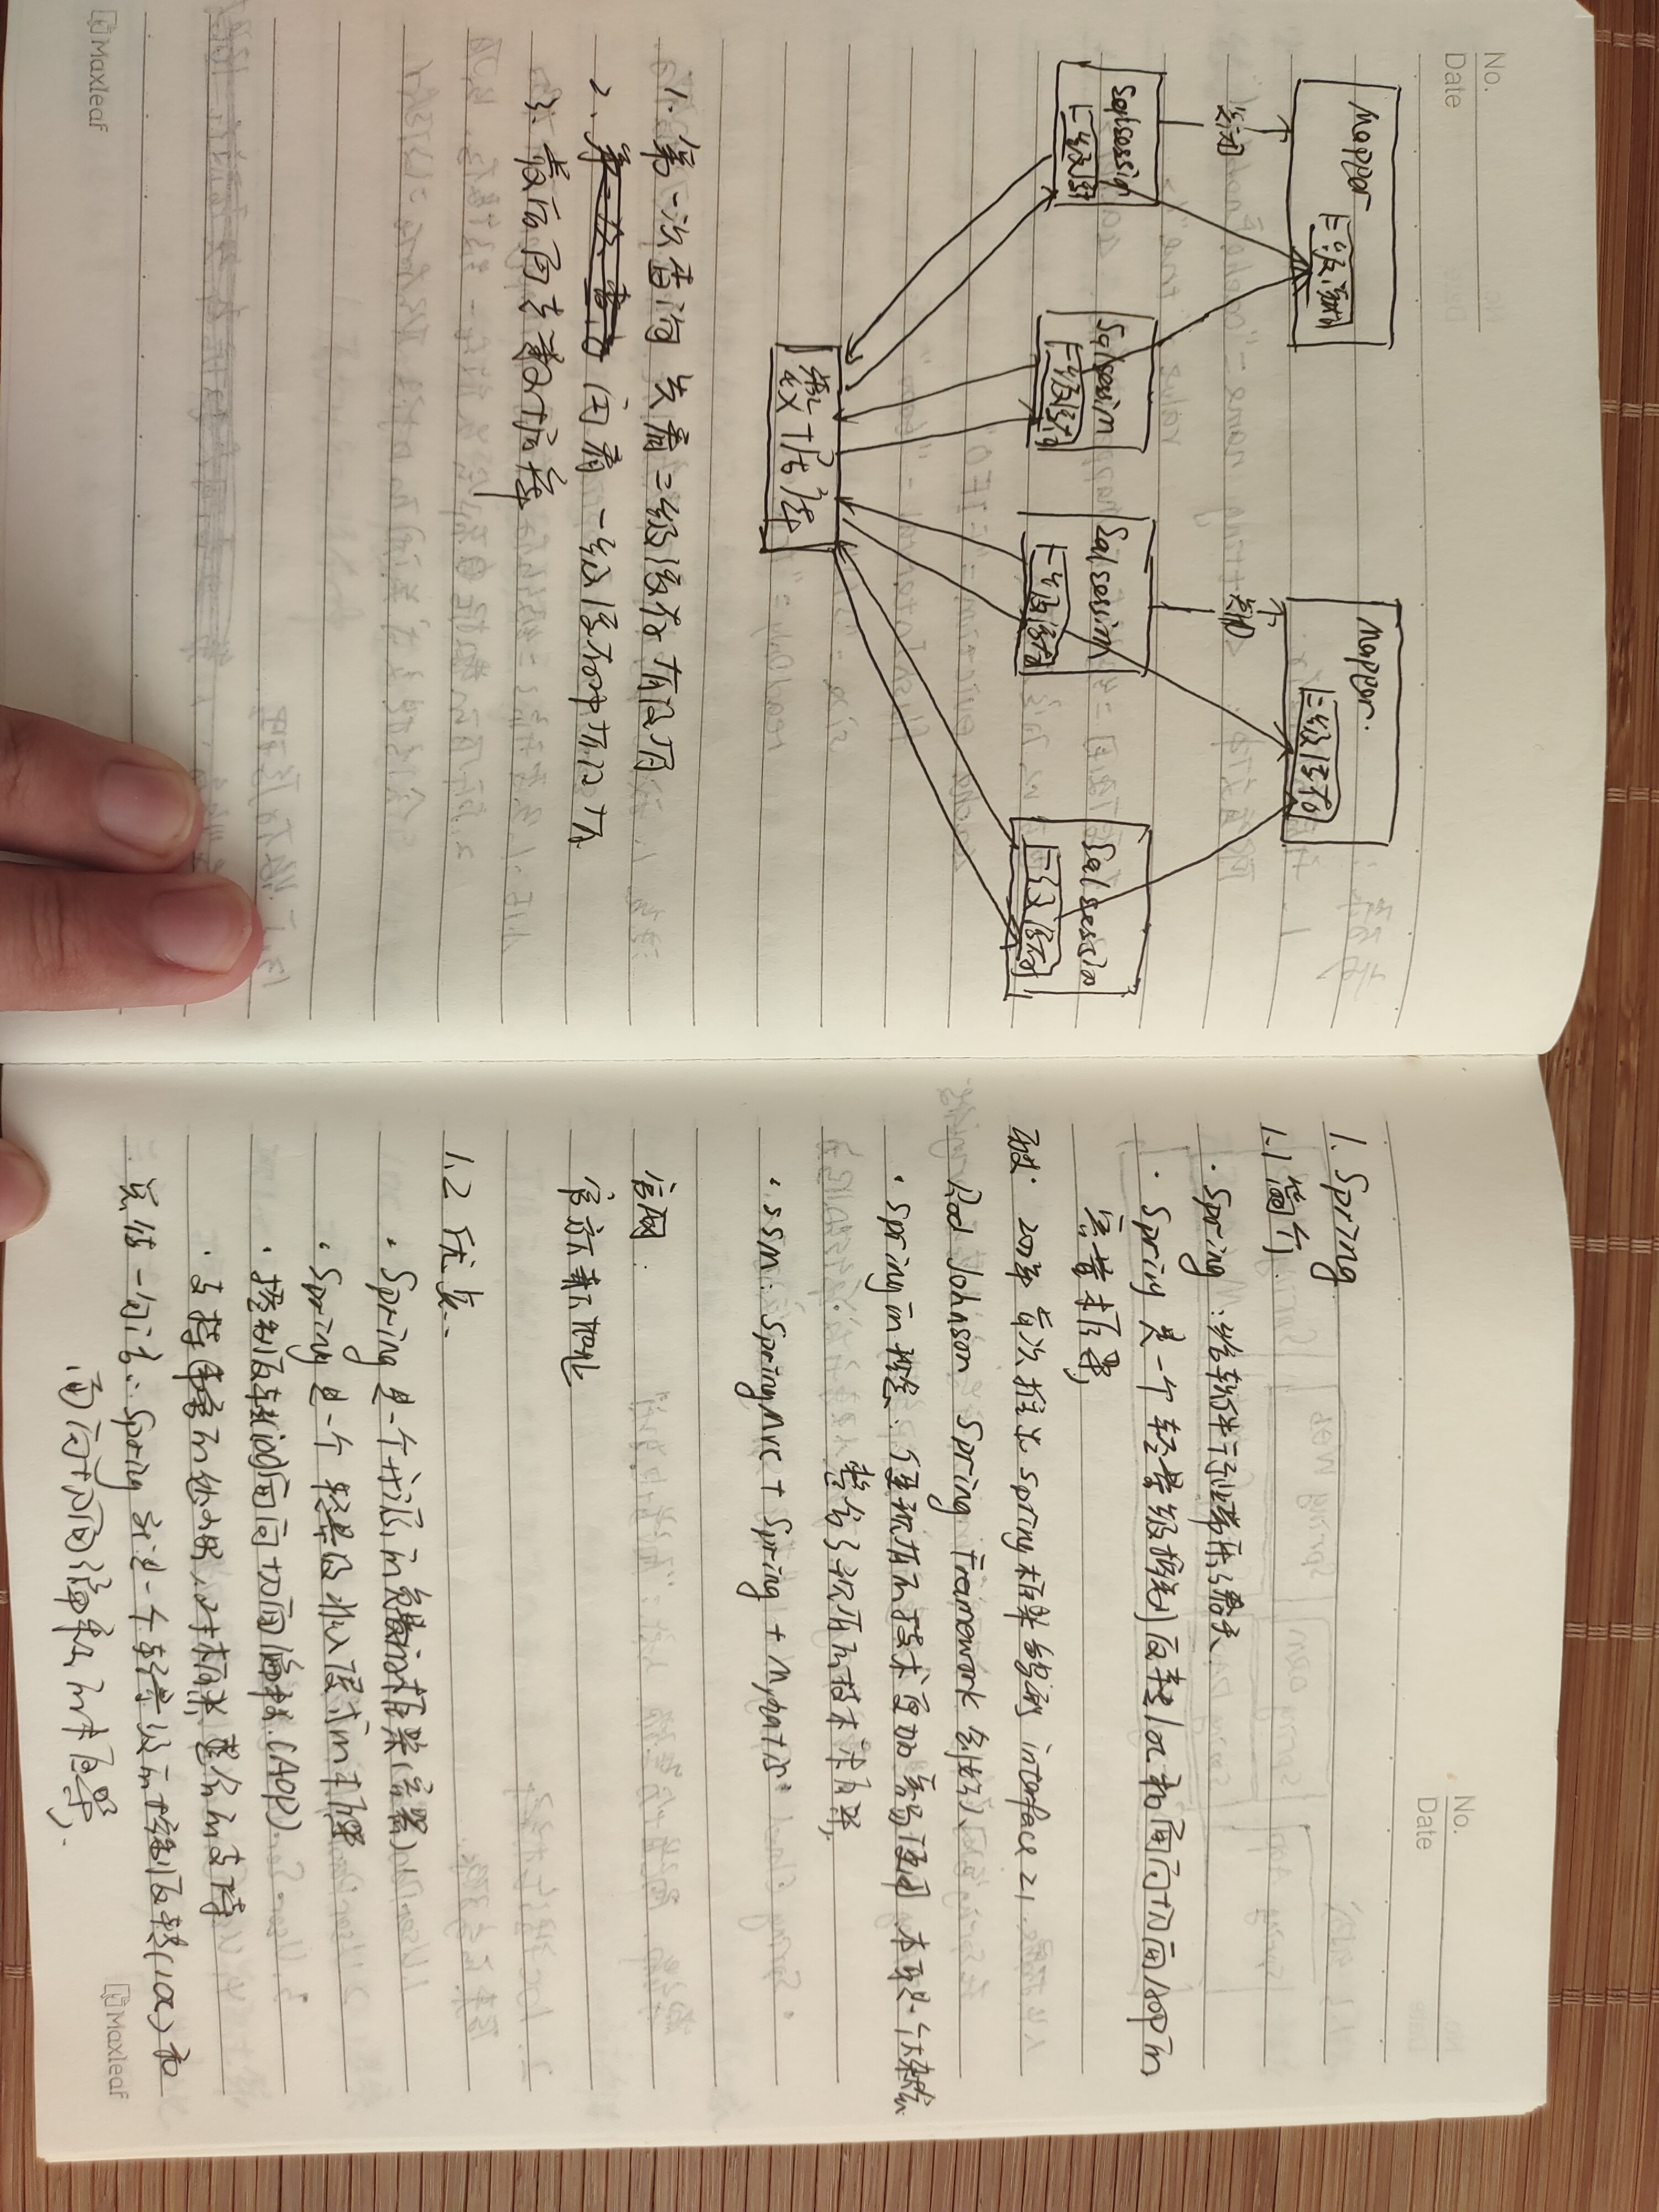 No.
Date
Mapper
二级缓存
mapper.
二级缓存
关闭
关闭
Sqlsession
一级缓存
Sqlsession
一级缓存
Sqlsession
一级缓存
Sqlsession
一级缓存
数据库
1. 第一次查询 先看二级缓存有没有
2. 因看一级缓存中有没有
3. 最后面去数据库
Maxleaf
No.
Date
1. Spring
1.1 简介
· Spring:给软件行业带来了春天
· Spring 是一个轻量级控制反转Ioc和面向切面AOP的
容器框架
2002年 首次推出 Spring框架 雏形 interface 21
Rod Johnson Spring Framework 创始人
· Spring的理念:使现有的技术更加容易使用 本身是一个大杂烩
整合了现有的技术框架
· SSM: SpringMvc + Spring + Mybatis
官网:
官方下载地址
1.2 优点:
· Spring 是一个开源的免费的框架(容器)
· Spring 是一个轻量级非入侵式的框架
· 控制反转 面向切面编程 (AOP)
· 支持事务的处理,对框架整合的支持
总结一句话:Spring 就是一个轻量级的控制反转(IOC)和
面向切面编程的框架.
Maxleaf